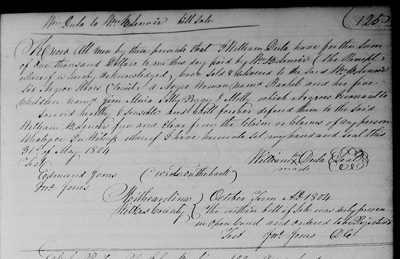 Wm Dula to Wm B Lenoir bill Sale (125)
Know All men by these presents that I William Dula have for the Sum
of one thousand Dollars to me this day paid by Wm B Lenoir (the Receipt
whereof is hereby acknowledged) have Sold & delivered to the Said Wm B Lenoir
Six Negroe Slaves (towit) a Negroe Woman Named Rachel and her five
Children Namd Jim Maria Sally & Milly which Negroes I warrant to
be Sound healthy & Sensible and Shall forever defend them to the Said
William B Lenoir free and Clear from the Claim or Claims of any person
Whatever In Witness whereof I have hereunto Set my hand and Seal this
31st of May 1804
Test William Dula (Seal)
Edmund Jones (wrote on the back) mark
Jno. Jones
North Carolina October Term AD 1804
Wilkes County The within bill of Sale was duly proven
in Open Court and ordered to be Registered
Test Jno. Jones